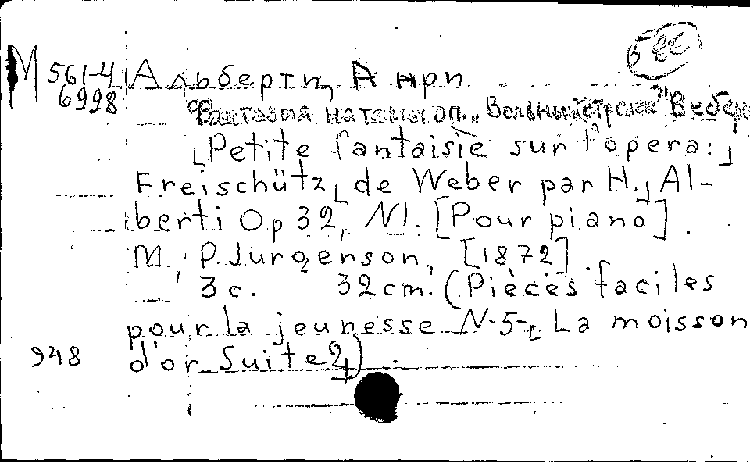 М 561-4 Альберти, Анри
6998
Фантазия на темы оп. „Вольный стрелок" Вебера
[Petite fantaisie sur l'opera:]
Freischütz[ de Weber par H.] Al-
berti Op 32, N1. [Pour piano].
М., P. Jurgenson, [1872]
3 с. 32 cm. (Pièces faciles
pour la jeunesse N-5-[ La moisson
948 d'or Suite 2])